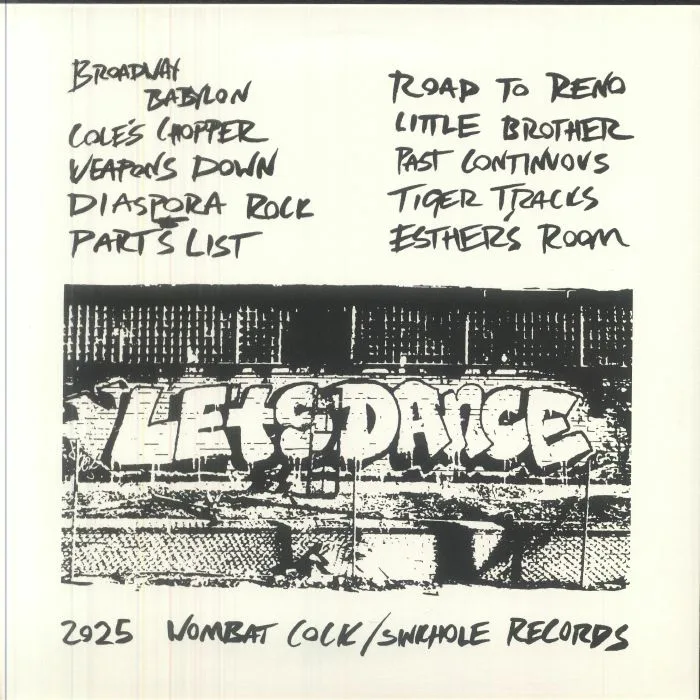 BROADWAY
BABYLON
COLE'S CHOPPER
WEAPONS DOWN
DIASPORA ROCK
PARTS LIST
ROAD TO RENO
LITTLE BROTHER
PAST CONTINUOUS
TIGER TRACKS
ESTHER'S ROOM
LETS DANCE
2025 WOMBAT COCK/SINKHOLE RECORDS